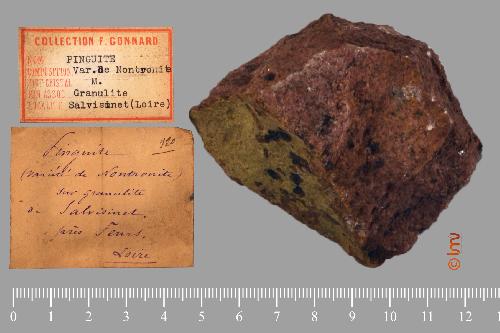 COLLECTION F. GONNARD
NOM PINGUITE
COMPOSITION Var. de Nontronite
M.
MIN ASSOC Granulite
LOCALITÉ Salvisinet (Loire)
920
Pinguite
(variété de Nontronite)
sur granulite
de Salvisinet,
près Feurs,
Loire
© lmv
0 1 2 3 4 5 6 7 8 9 10 11 12